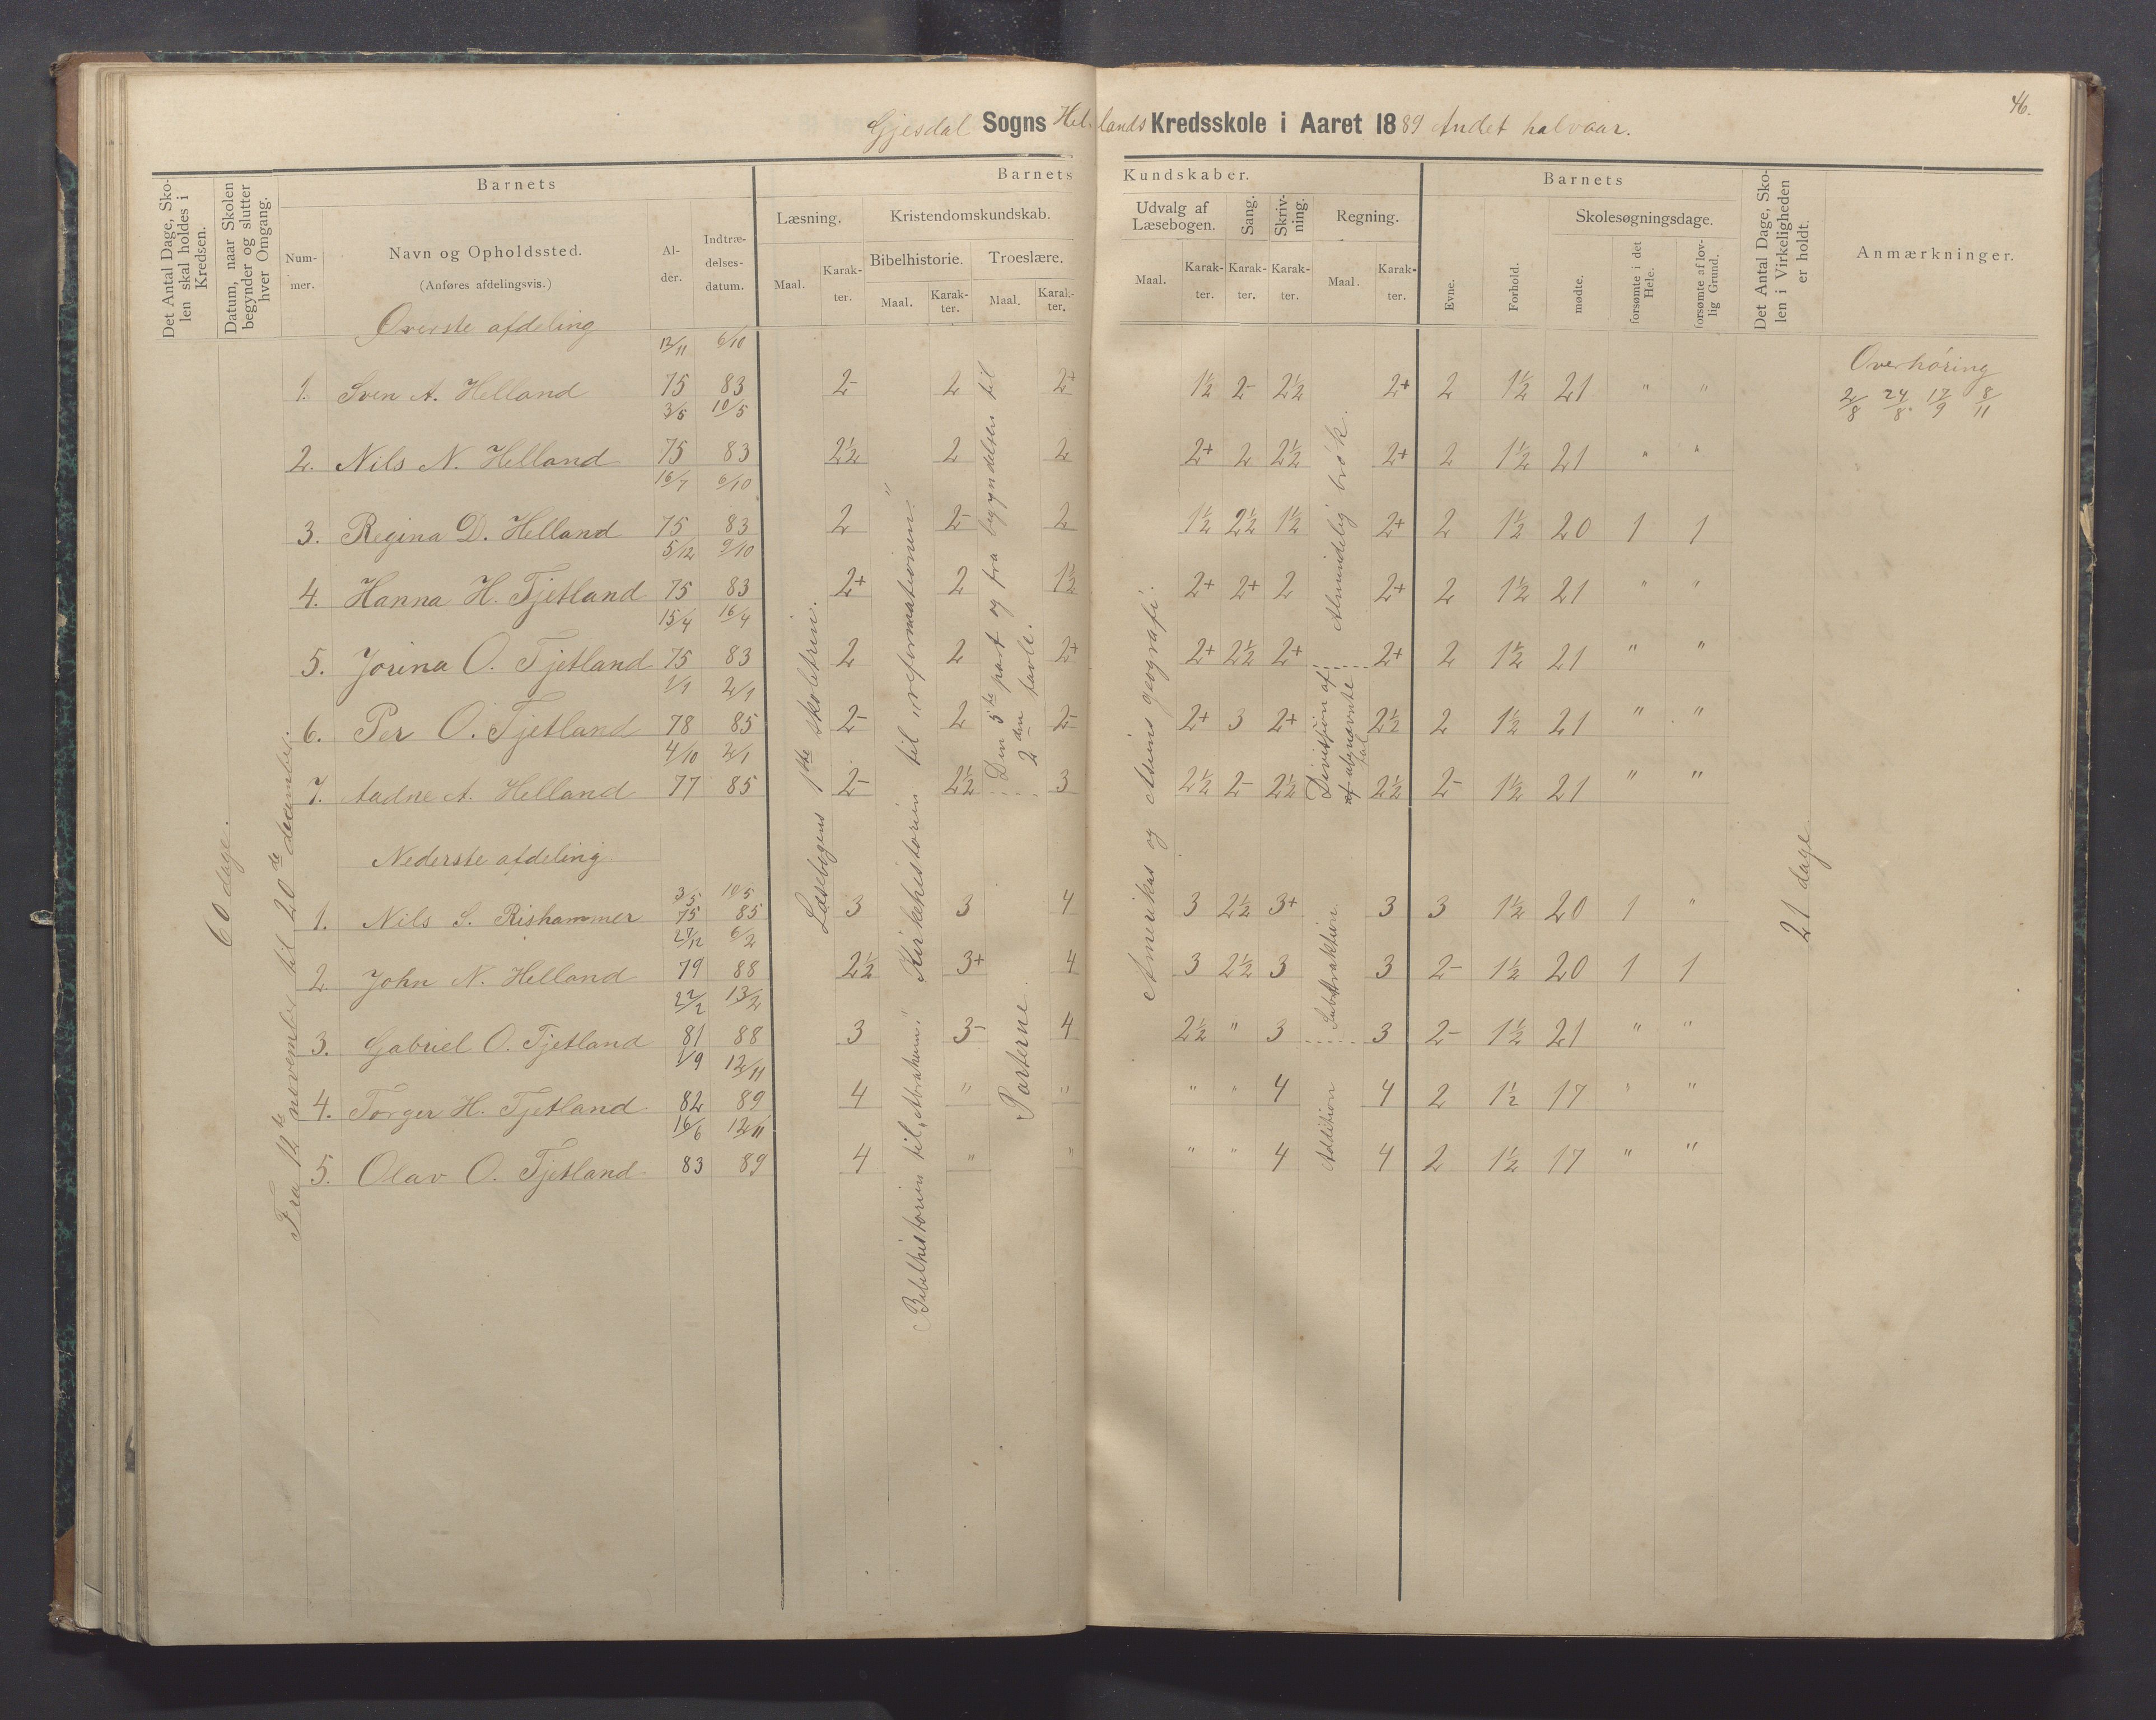 46.
Gjesdal Sogns Hellands Kredsskole i Aaret 1889 Andet halvaar.
Det Antal Dage, Skolen skal holdes i Kredsen.
Datum, naar Skolen begynder og slutter hver Omgang.
Barnets
Barnets Kundskaber.
Barnets
Det Antal Dage, Skolen i Virkeligheden er holdt.
Anmærkninger.
Nummer.
Navn og Opholdssted.
(Anføres afdelingsvis.)
Alder.
Indtrædelsesdatum.
Læsning.
Kristendomskundskab.
Udvalg af Læsebogen.
Sang.
Skrivning.
Regning.
Evne.
Forhold.
Skolesøgningsdage.
Maal.
Karakter.
Bibelhistorie.
Troeslære.
Maal.
Karakter.
Maal.
Karakter.
Maal.
Karakter.
Karakter.
Karakter.
Maal.
Karakter.
mødte.
forsømte i det Hele.
forsømte af lovlig Grund.
Øverste afdeling
Overhøring
2/8 24/8. 17/9 8/11
12/11 6/10
1. Sven A. Helland 75 83 2- 2 2+ 1½ 2- 2½ 2+ 2 1½ 21 " "
3/5 10/5
2. Nils N. Helland 75 83 2½ 2 2 2+ 2 2½ 2+ 2 1½ 21 " "
16/7 6/10
3. Regina D. Helland 75 83 2 2- 2 1½ 2½ 1½ 2+ 2 1½ 20 1 1
5/12 9/10
4. Hanna H. Tjetland 75 83 2+ 2 1½ 2+ 2+ 2 2+ 2 1½ 21 " "
15/4 16/4
5. Jorina O. Tjetland 75 83 2 2 2+ 2+ 2½ 2+ 2+ 2 1½ 21 " "
1/1 2/1
6. Per O. Tjetland 78 85 2- 2 2- 2+ 3 2+ 2½ 2 1½ 21 " "
4/10 2/1
7. Aadne A. Helland 77 85 2- 2½ 3 2½ 2- 2½ 2½ 2- 1½ 21 " "
Nederste afdeling
3/5 10/5
1. Nils S. Rishammer 75 85 3 3 4 3 2½ 3+ 3 3 1½ 20 1 "
27/12 6/2
2. John N. Helland 79 88 2½ 3+ 4 3 2½ 3 3 2- 1½ 20 1 1
22/2 13/2
3. Gabriel O. Tjetland 81 88 3 3- 4 2½ " 3 3 2- 1½ 21 " "
1/9 12/11
4. Torger H. Tjetland 82 89 4 " " " " 4 4 2 1½ 17 " "
16/6 12/11
5. Olav O. Tjetland 83 89 4 " " " " 4 4 2 1½ 17 " "
60 dage.
Fra 12te november til 20de december.
Læsebogens 1ste skoletrin.
Kirkehistorien til "reformationen."
Bibelhistorien til "Abraham."
Den 5te part og fra begyndelsen til
2den tavle.
Parterne.
Amerikas og Asiens geografi.
Almindelig brøk.
Division af
ubenævnte
tal
Subtraktion.
Addition
21 dage